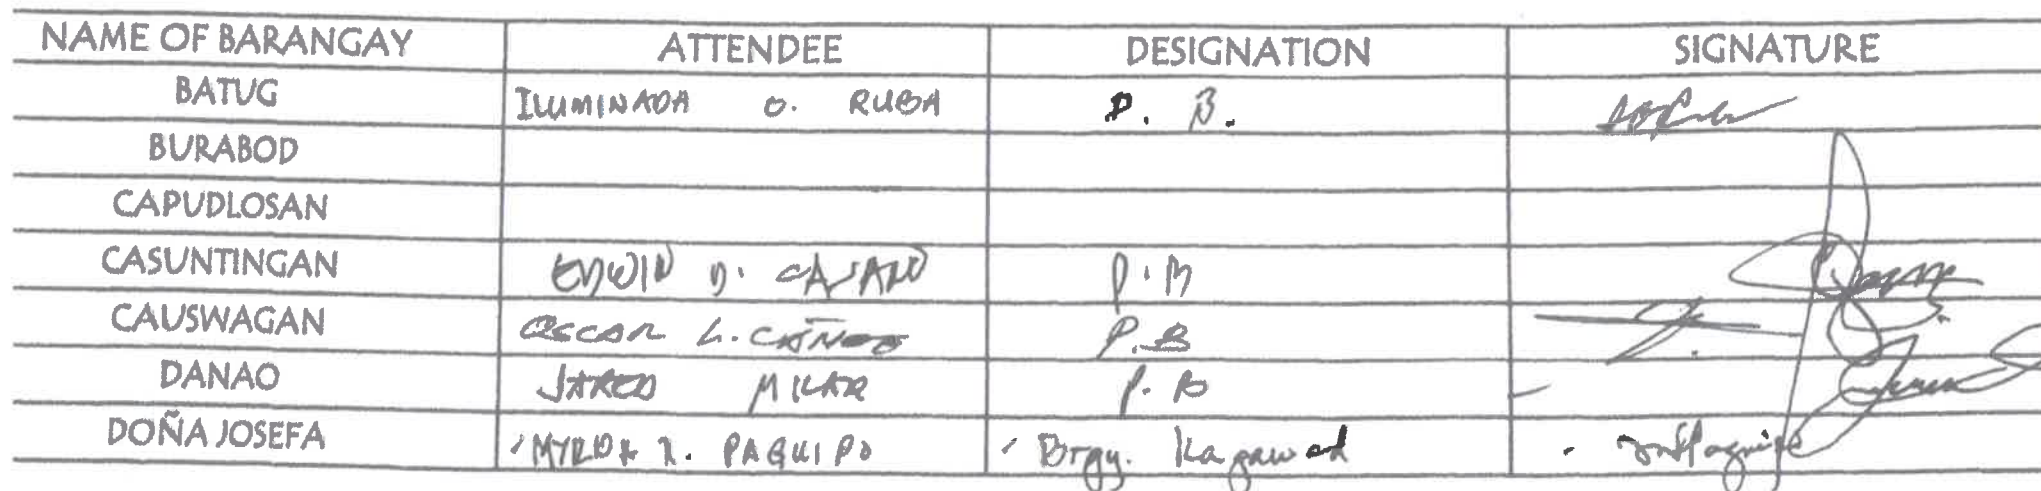 NAME OF BARANGAY ATTENDEE DESIGNATION SIGNATURE
BATUG ILUMINADA O. RUBA P. B.
BURABOD
CAPUDLOSAN
CASUNTINGAN EDWIN D. P.B
CAUSWAGAN OSCAR L. CAÑETE P.B
DANAO JARED MILAR P.B
DOÑA JOSEFA PAQUIPO Brgy. Kagawad